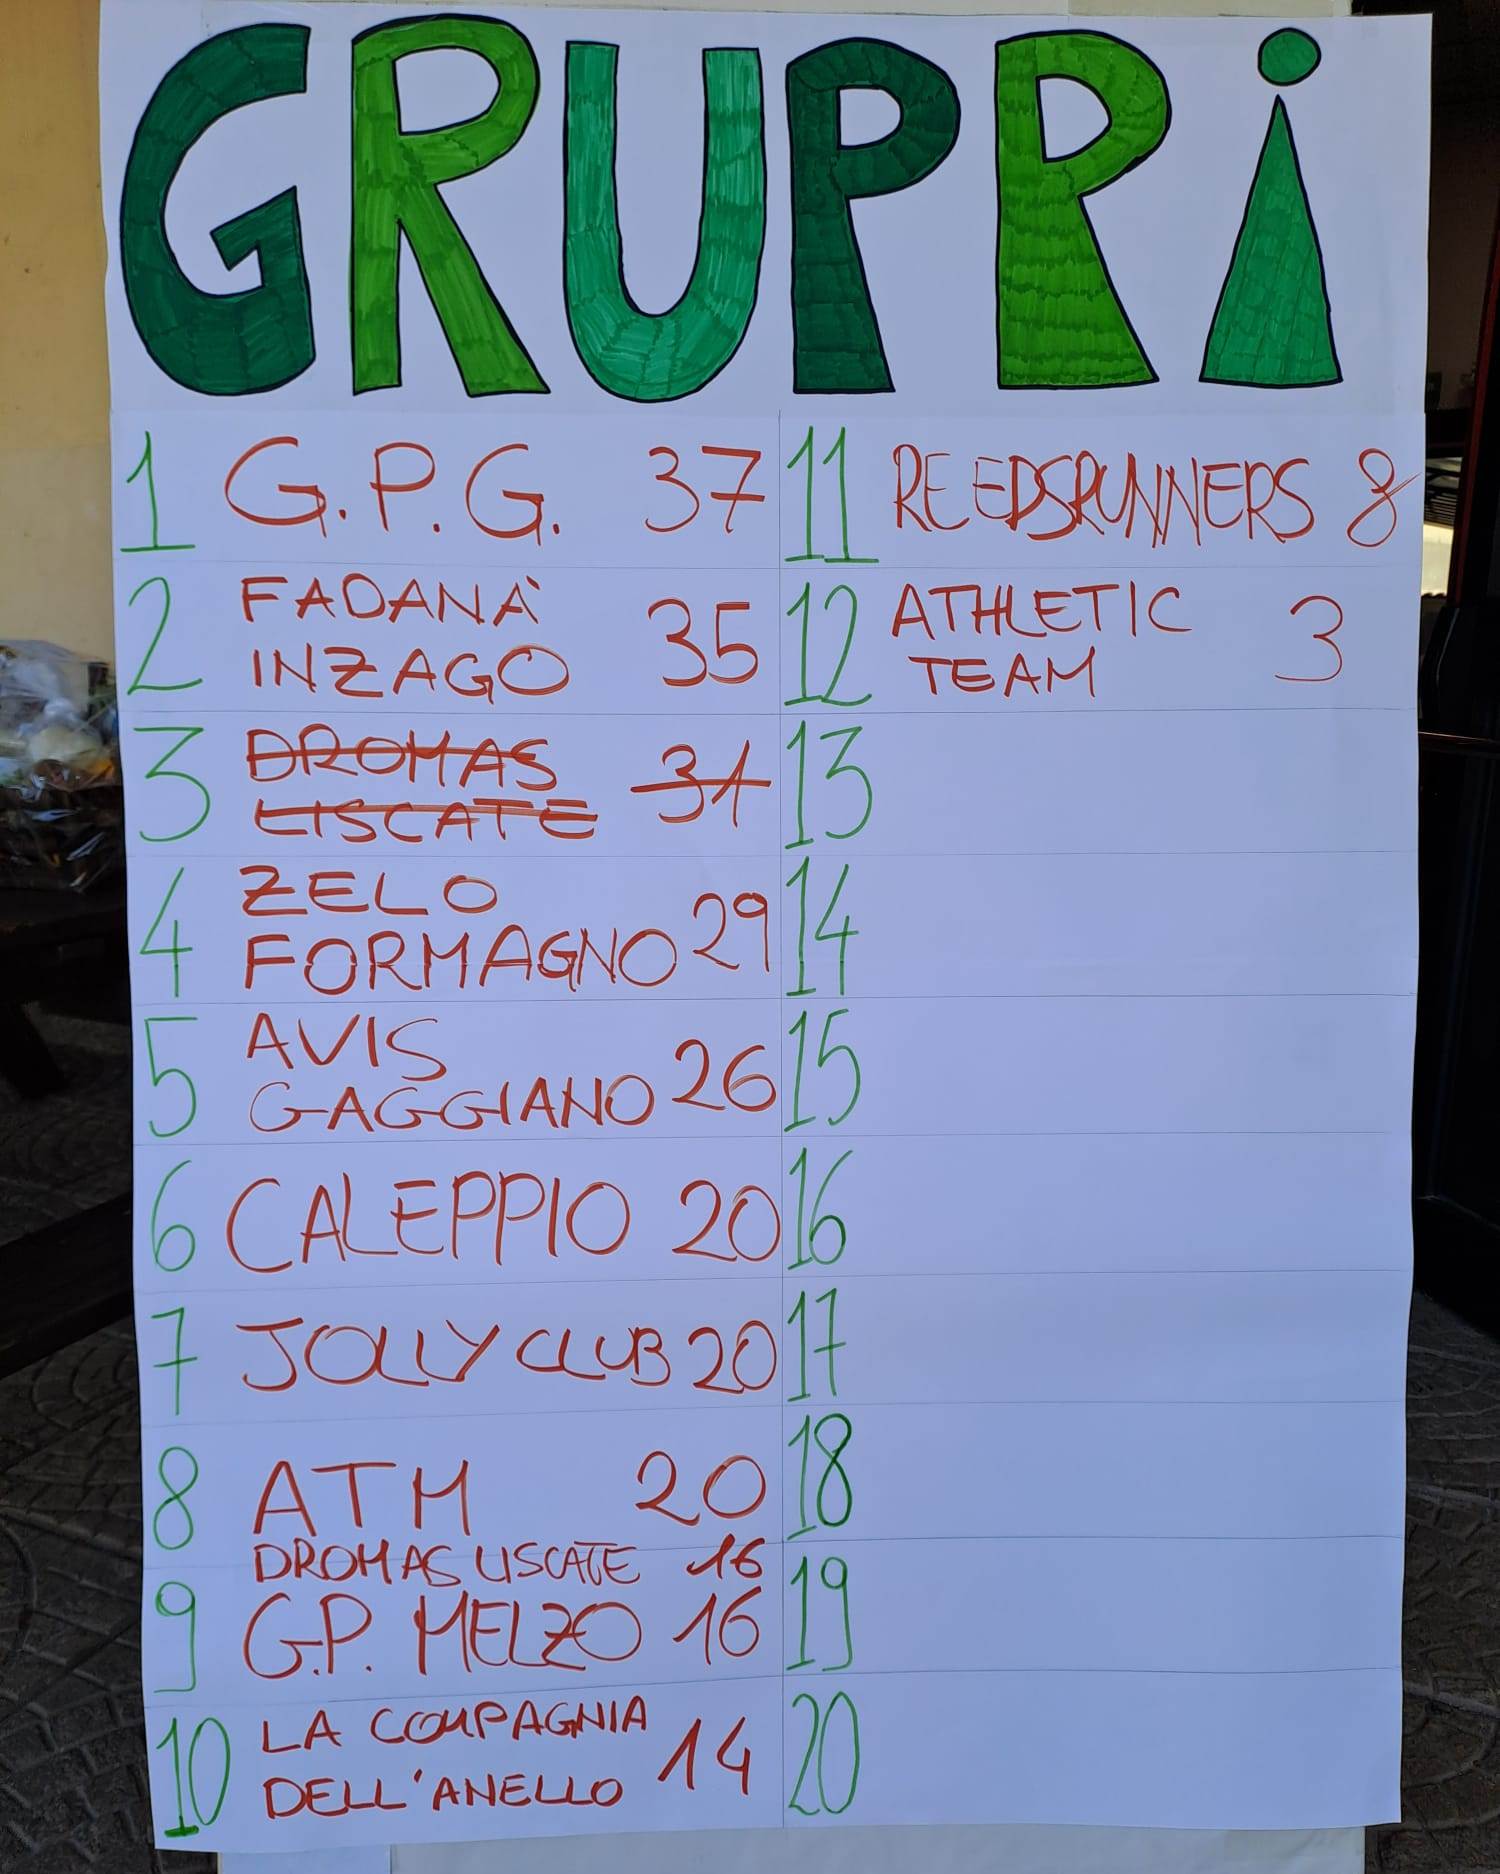 GRUPRi
1 G.P.G. 37
2 FADANÀ
INZAGO 35
3 DROMAS
LISCATE 31
4 ZELO
FORMAGNO 29
5 AVIS
GAGGIANO 26
6 CALEPPIO 20
7 JOLLY CLUB 20
8 ATM 20
DROMAS LISCATE 16
9 G.P. MELZO 16
10 LA COMPAGNIA
DELL'ANELLO 14
11 REEDSRUNNERS 8
12 ATHLETIC
TEAM 3
13
14
15
16
17
18
19
20